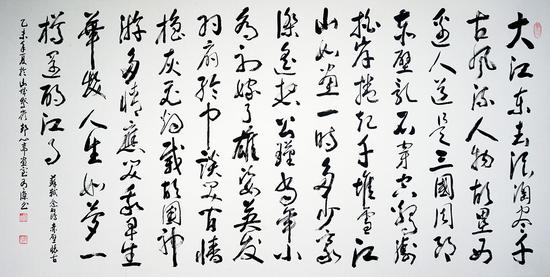 大江东去浪淘尽千
古风流人物故垒西
边人道是三国周郎
赤壁乱石穿空惊涛
拍岸捲起千堆雪江
山如画一时多少豪
傑遥想公瑾当年小
乔初嫁了雄姿英发
羽扇纶巾谈笑间樯
橹灰飞烟灭故国神
游多情应笑我早生
華发人生如梦一
樽还酹江月
苏轼念奴娇赤壁怀古
乙未年夏於